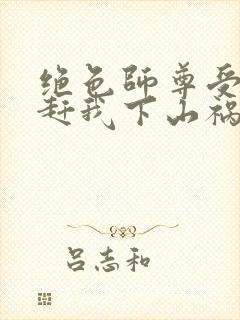 绝色师尊受
赶我下山祸
吕志和